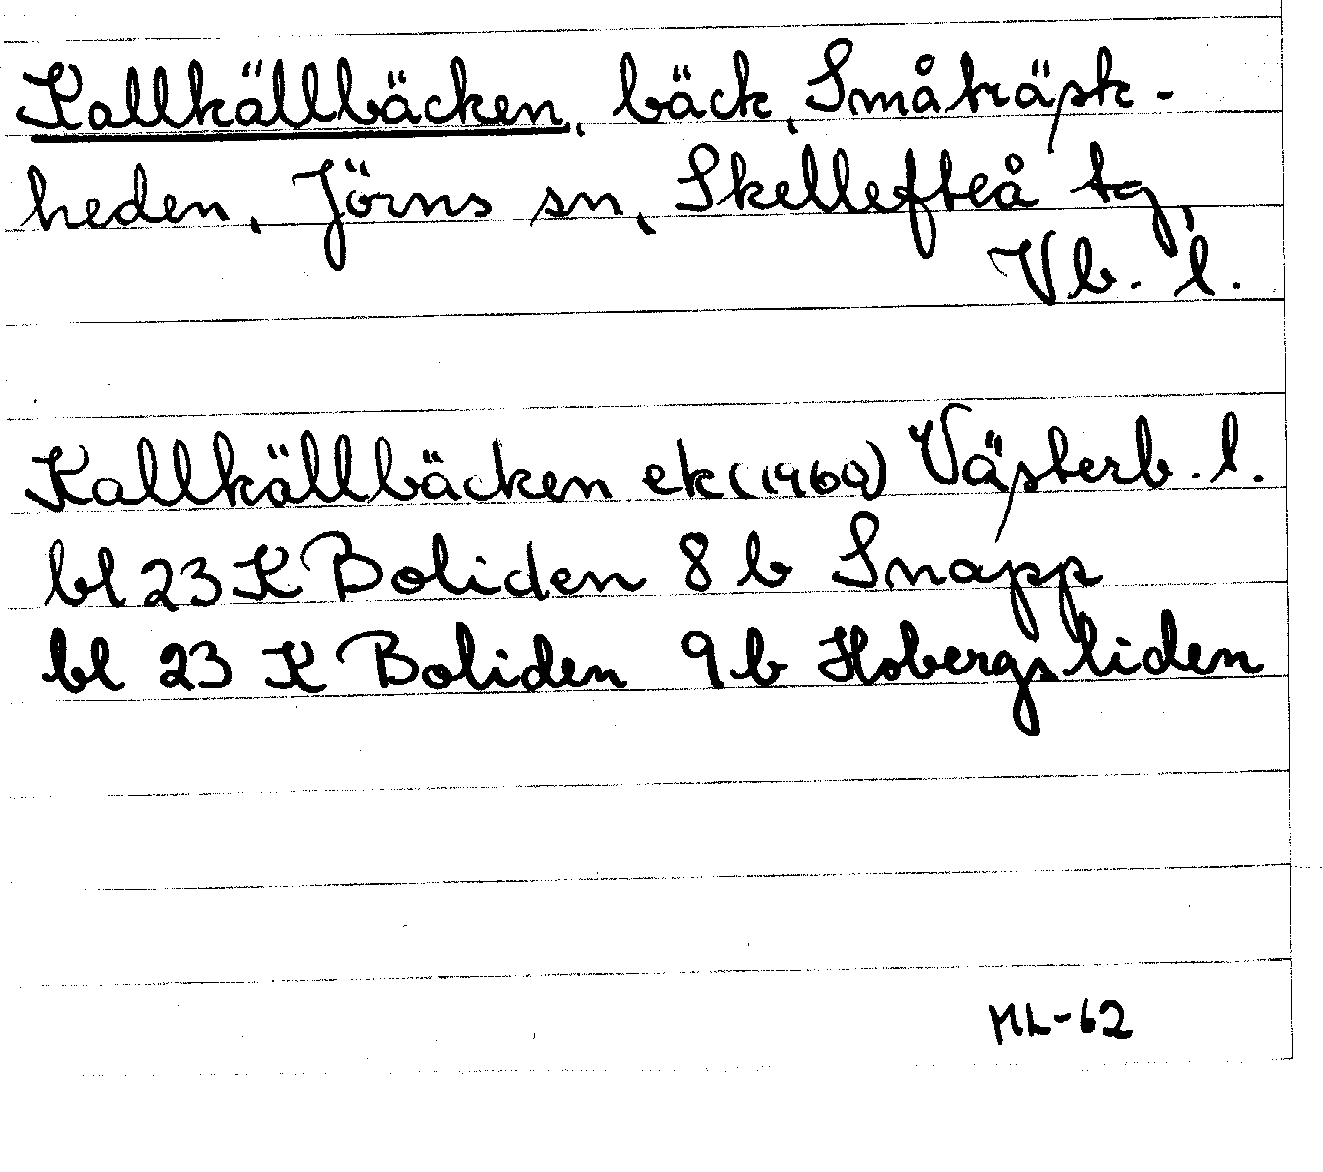 Kallkällbäcken, bäck, Småträsk-
heden, Jörns sn, Skellefteå tg,
Vb. l.
Kallkällbäcken ek (1960) Västerb. l.
bl 23 K Boliden 8 b Snapp
bl 23 K Boliden 9 b Hobergsliden
ML-62